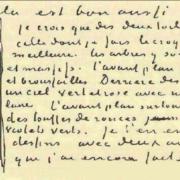 la est bon aussi
je crois que des deux toiles
celle dont je fais le croquis
meilleure les arbres y sont
et massifs. l'avant plan
et broussailles Derrière des
un ciel vert et rose avec une
lune. L'avant plan surtout
des touffes de ronces
violets verts. Je t'en en
dessins avec deux au
que j'ai encore faits